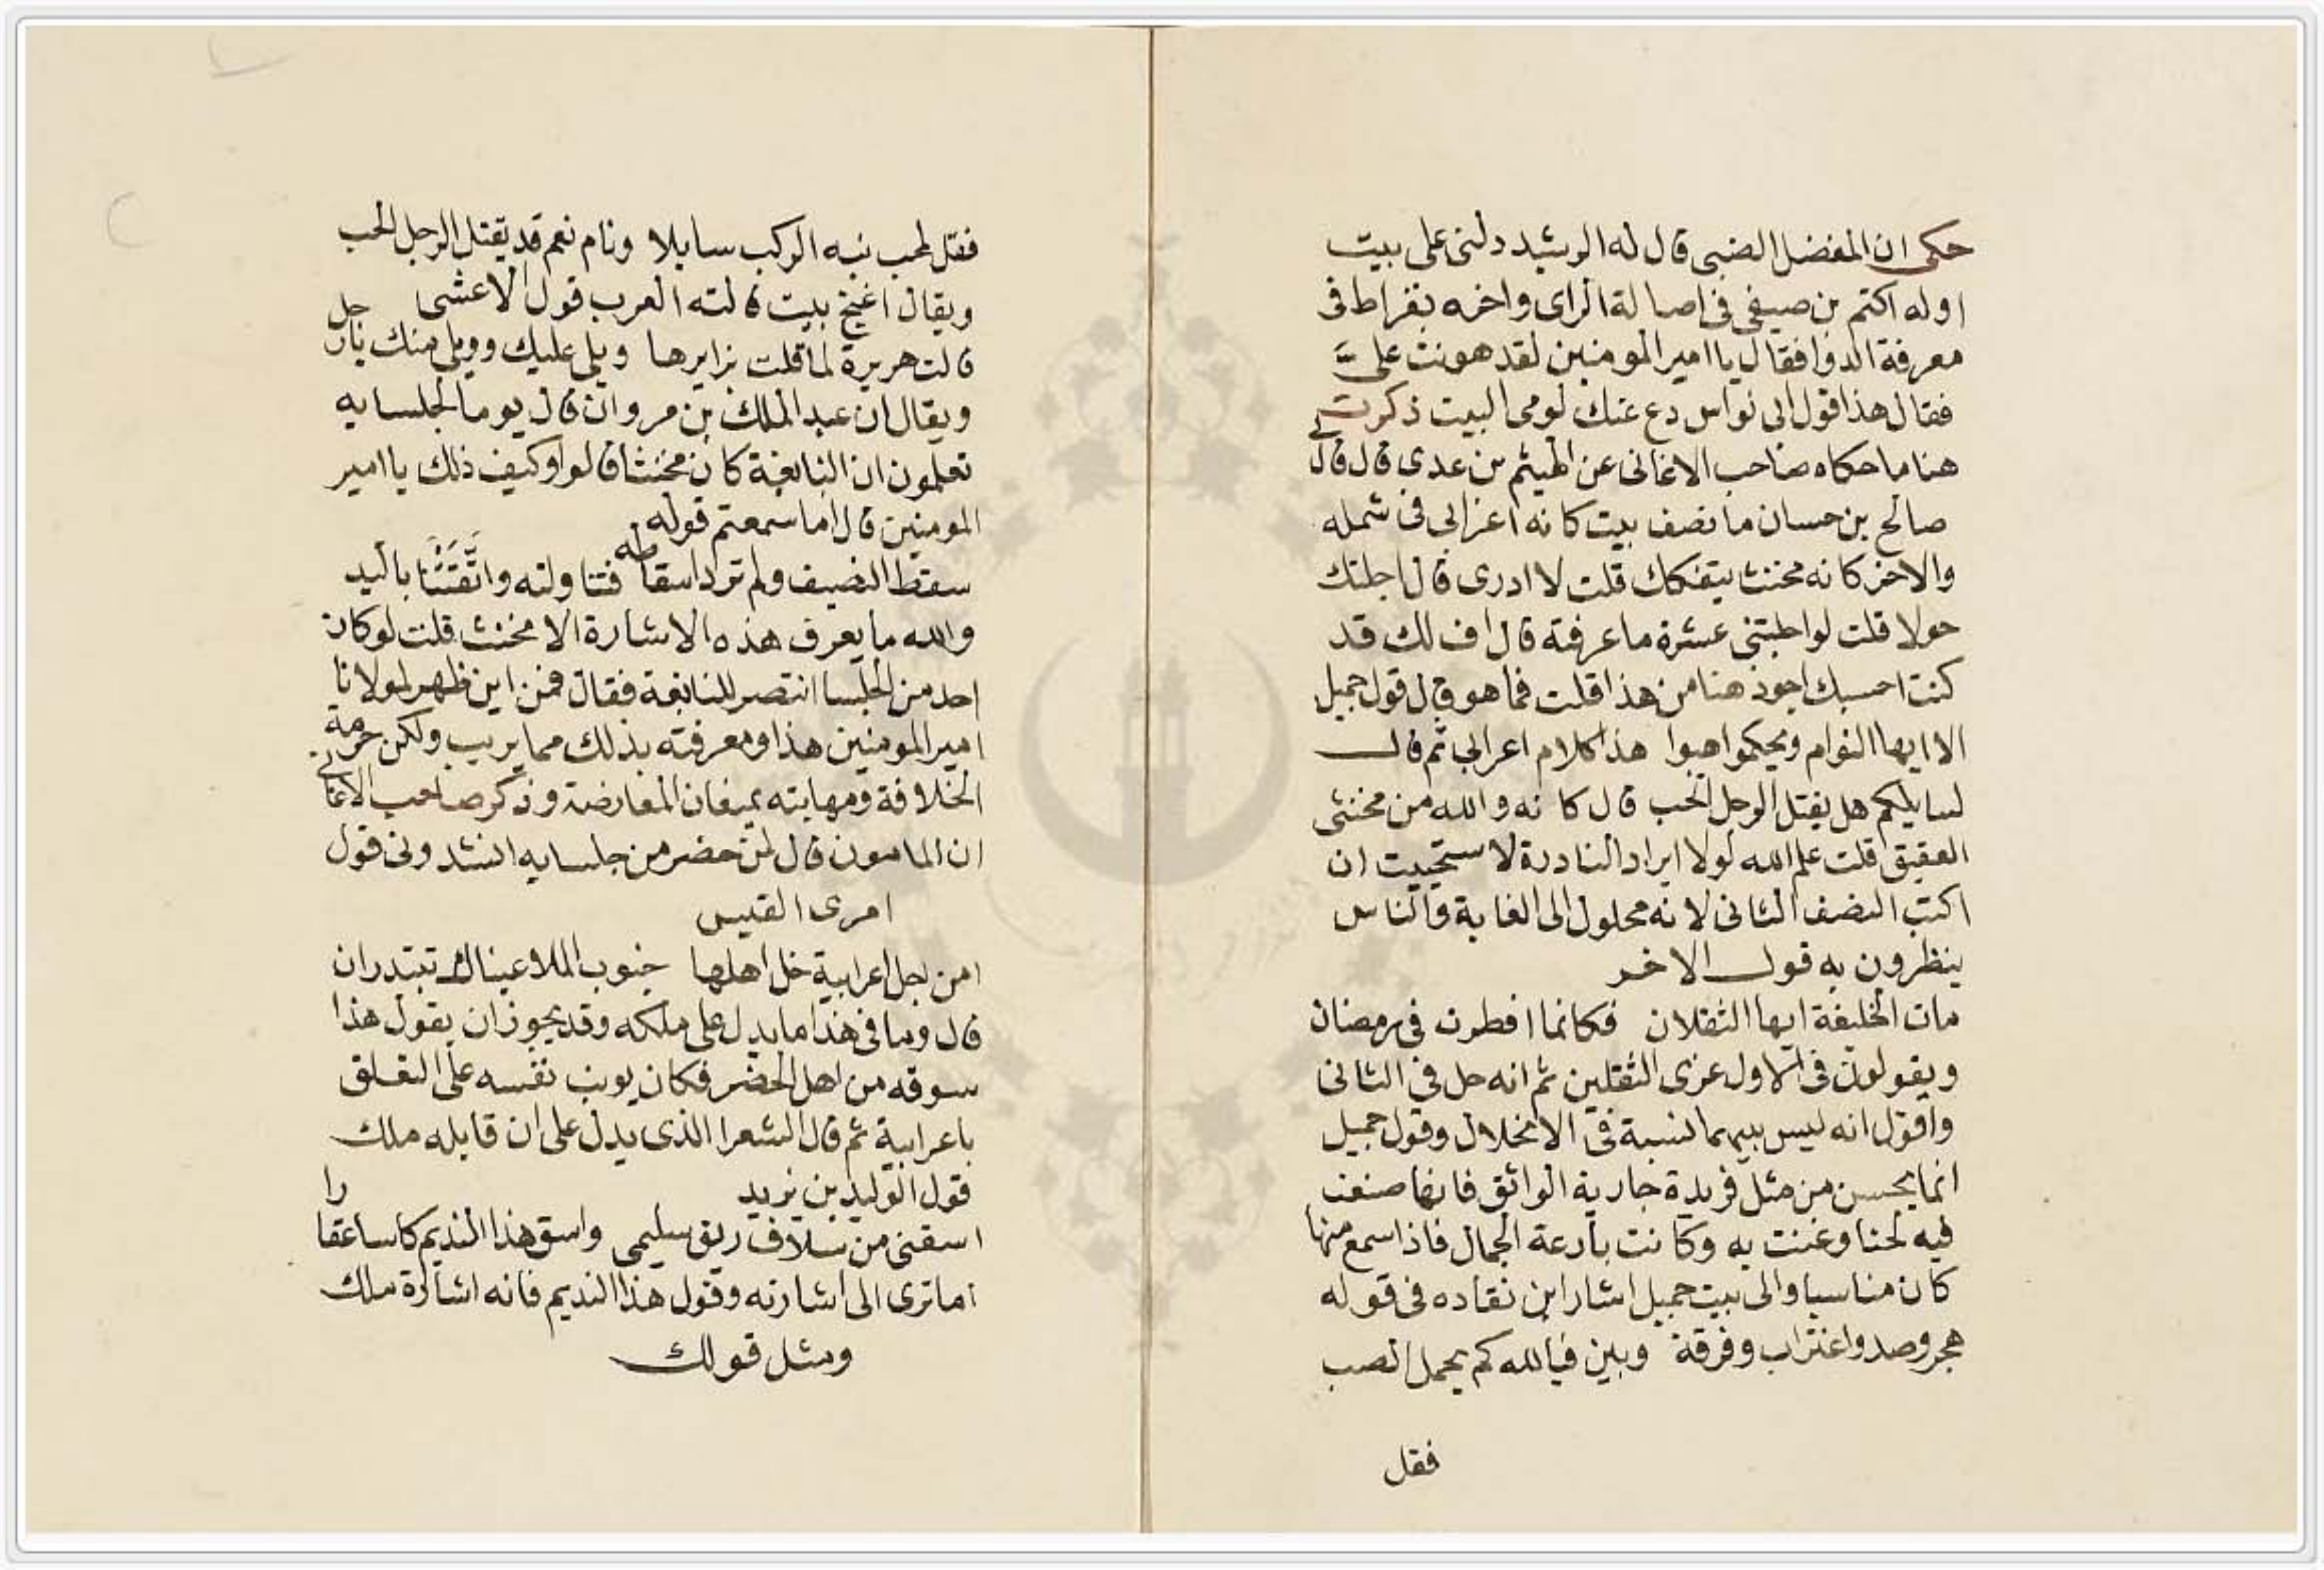 حكى ان المفضل الضبى قال له الرشيد دلنى على بيت
اوله اكثم بن صيفى فى اصالة الراى واخره بقراط فى
معرفة الدوا فقال يا امير المومنين لقد هونت علىَّ
فقال هذا قول ابى نواس دع عنك لومى البيت ذكرت
هنا ما حكاه صاحب الاغانى عن الهيثم بن عدى قال قال لى
صالح بن حسان ما نصف بيت كانه اعرابى فى شمله
والاخر كانه مخنث يتفكك قلت لا ادرى قال اجلتك
حولا قلت لو اجلتنى عشرة ما عرفته قال اف لك قد
كنت احسبك اجود هنا من هذا قلت فما هو قال قول جميل
الا ايها النوام ويحكموا هبوا هذا كلام اعرابى ثم قال
لسايلكم هل يقتل الرجل الحب قال كانه والله من مخنثى
العقيق قلت علم الله لولا ايراد النادرة لاستحييت ان
اكتب النصف الثانى لانه محلول الى الغاية والناس
ينظرون به قول الاخر
مات الخليفة ايها الثقلان فكانما افطرت فى رمضان
ويقولون فى الاول عزى الثقلين ثم انه حل فى الثانى
واقول انه ليس بينهما نسبة فى الانحلال وقول جميل
انما يحسن من مثل فريدة جارية الواثق فانها صنعت
فيه لحنا وغنت به وكانت بارعة الجمال فاذا سمع منها
كان مناسبا والى بيت جميل اشار ابن نقاده فى قوله
هجر وصد واغتراب وفرقة وبين فيالله كم يحمل الصب
فقل
فقل لمحب نبه الركب سايلا ونام نعم قد يقتل الرجل الحب
ويقال اغنج بيت قالته العرب قول الاعشى
قالت هريرة لما قلت زايرها ويلى عليك وويلى منك يا رجل
ويقال ان عبد الملك بن مروان قال يوما لجلسايه
تعلمون ان النابغة كان مخنثا قالوا وكيف ذلك يا امير
المومنين قال اما سمعتم قوله
سقط النصيف ولم ترد اسقاطه فتناولته واتَّقَتْنَا باليد
والله ما يعرف هذه الاشارة الا مخنث قلت لو كان
احد من الجلسا انتصر للنابغة فقال فمن اين ظهر لمولانا
امير المومنين هذا ومعرفته بذلك مما يريب ولكن حرمة
الخلافة ومهابته يمنعان المعارضة وذكر صاحب الاغانى
ان المامون قال لمن حضر من جلسايه انشدونى قول
امرى القيس
امن اجل اعرابية حل اهلها جنوب الملا عيناك تبتدران
قال وما فى هذا ما يدل على ملكه وقد يجوز ان يقول هذا
سوقه من اهل الحضر فكان يونب نفسه على التعلق
باعرابية ثم قال الشعر الذى يدل على ان قايله ملك
قول الوليد بن يزيد
اسقنى من سلاف ريق سليمى واسق هذا النديم كاسا عقارا
اما ترى الى اشارته وقول هذا النديم فانه اشارة ملك
ومثل قولك